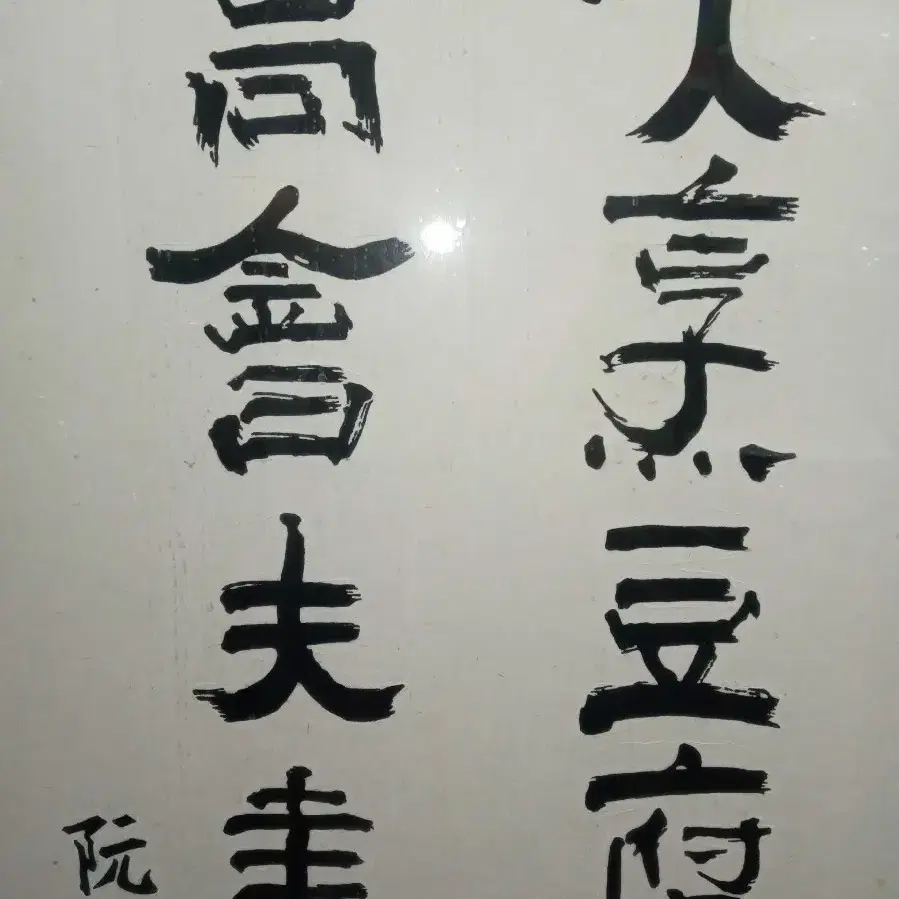 大烹豆腐
高會夫妻
阮